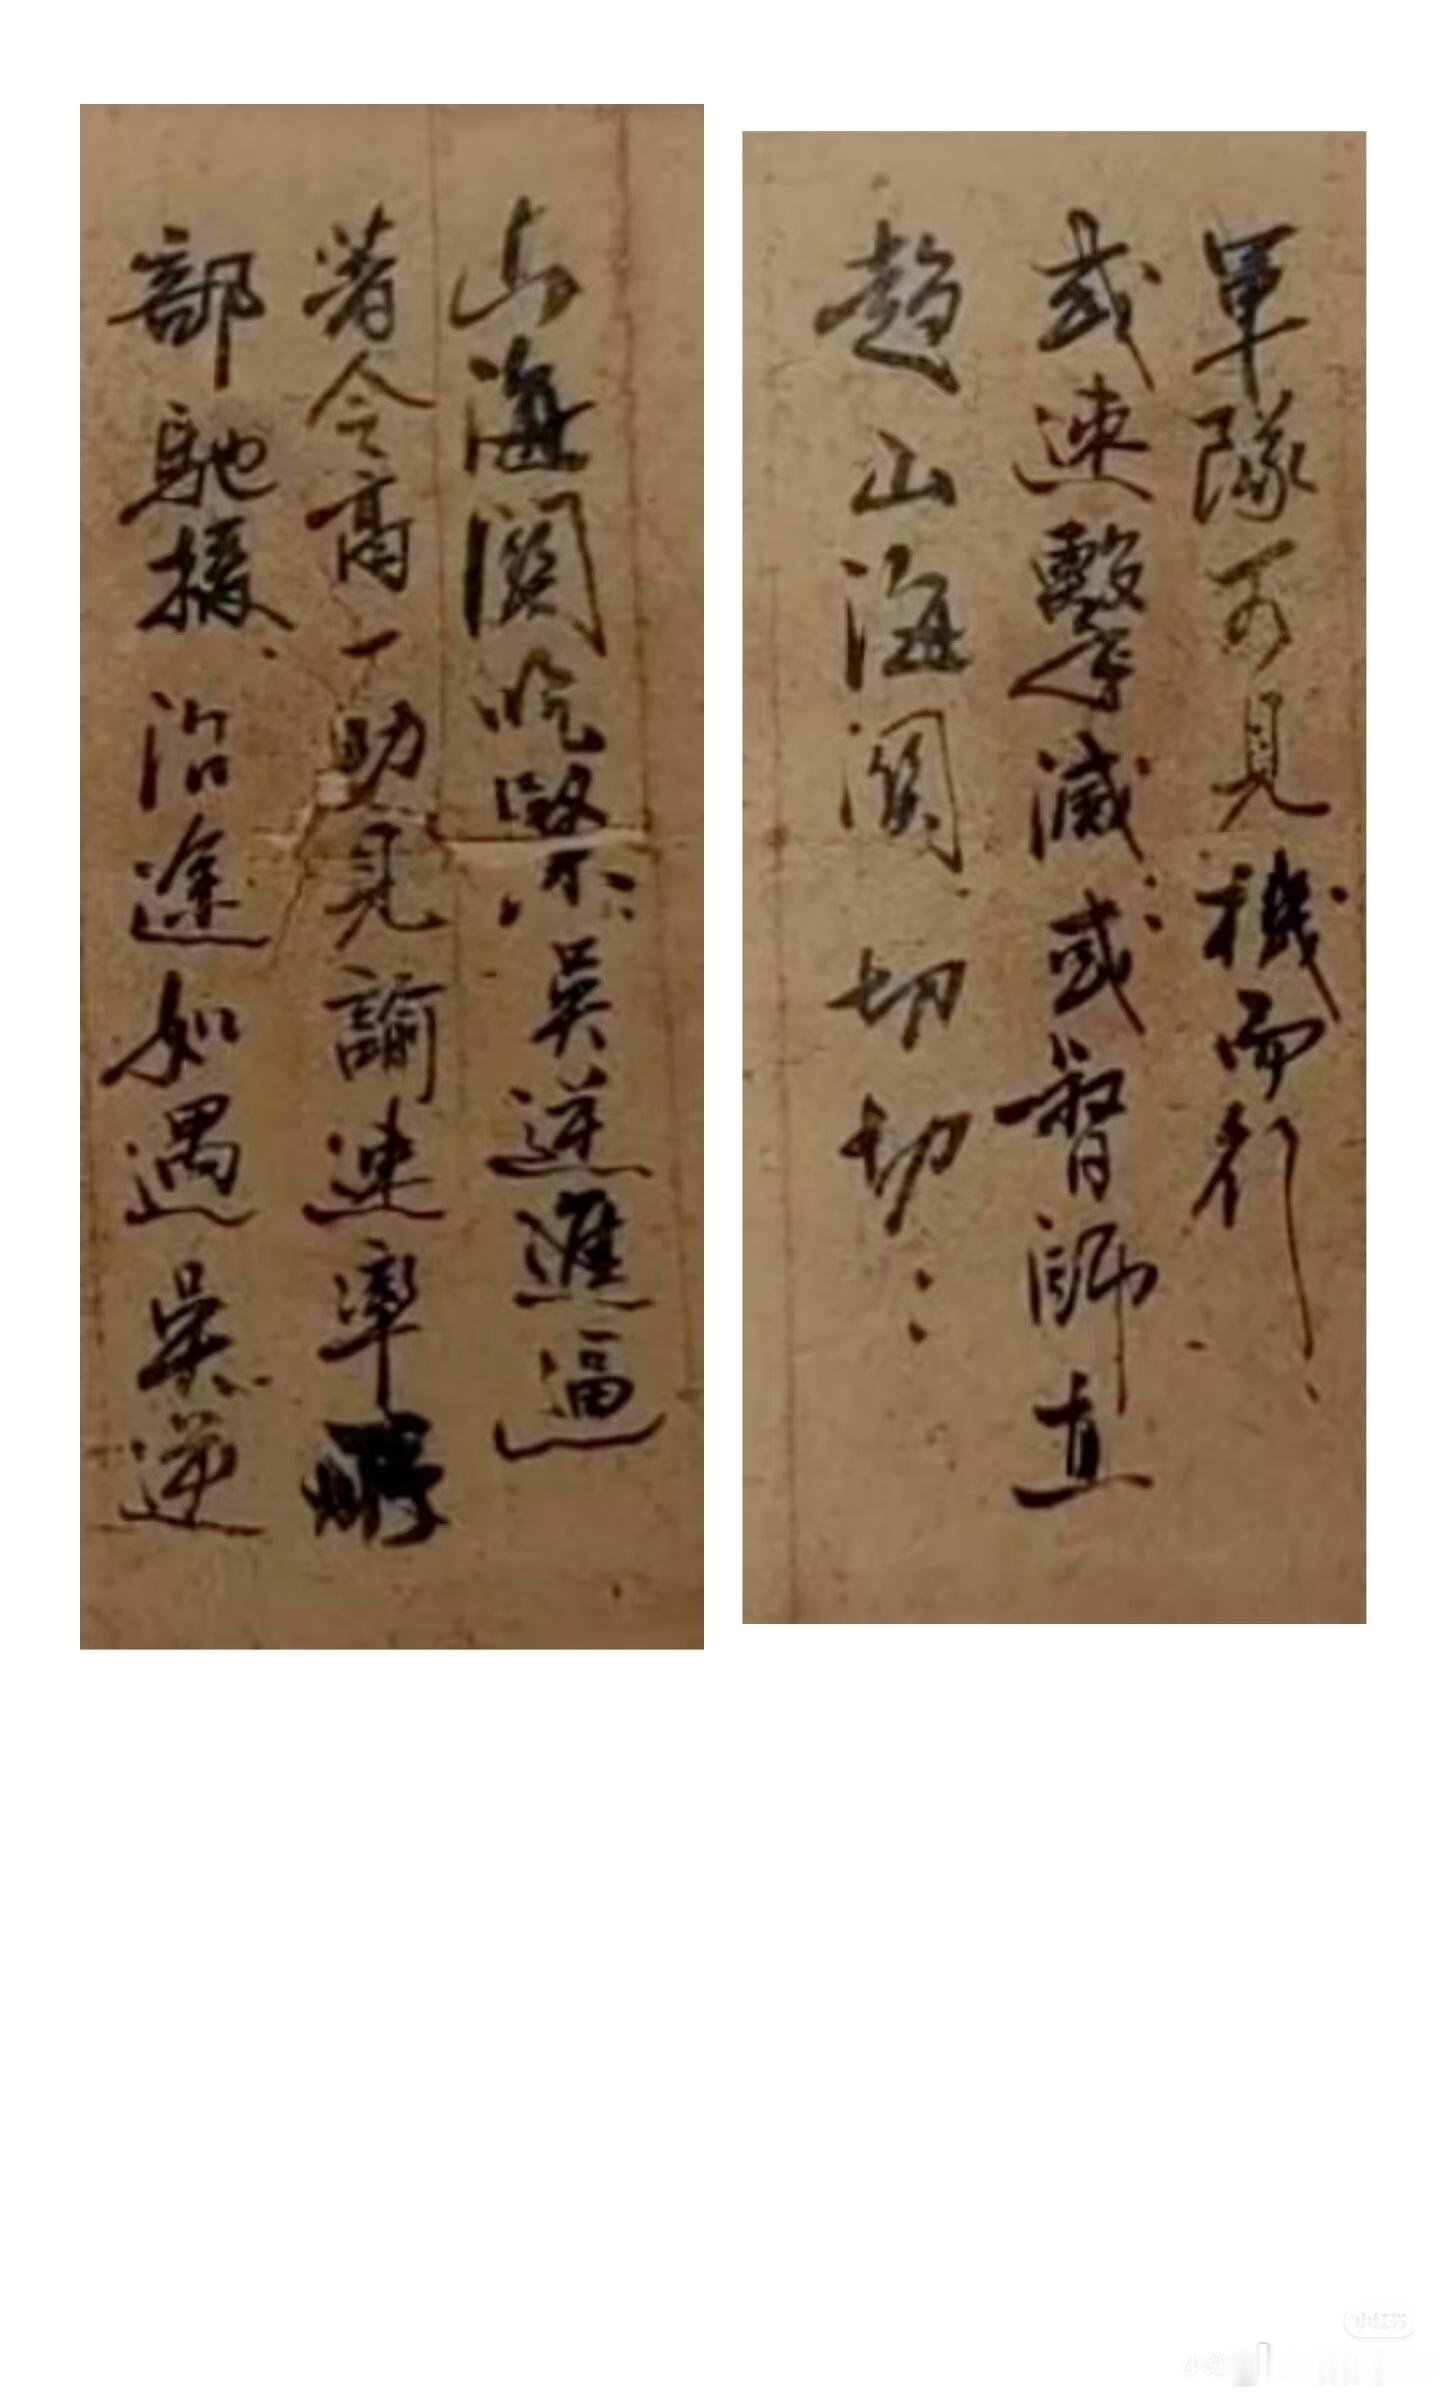 山海関吃緊吳逆進逼
著令高一功見諭速率
部馳援沿途如遇吳逆
軍隊可見機而行
或速擊滅或督師直
趨山海関切切
小红书
小红